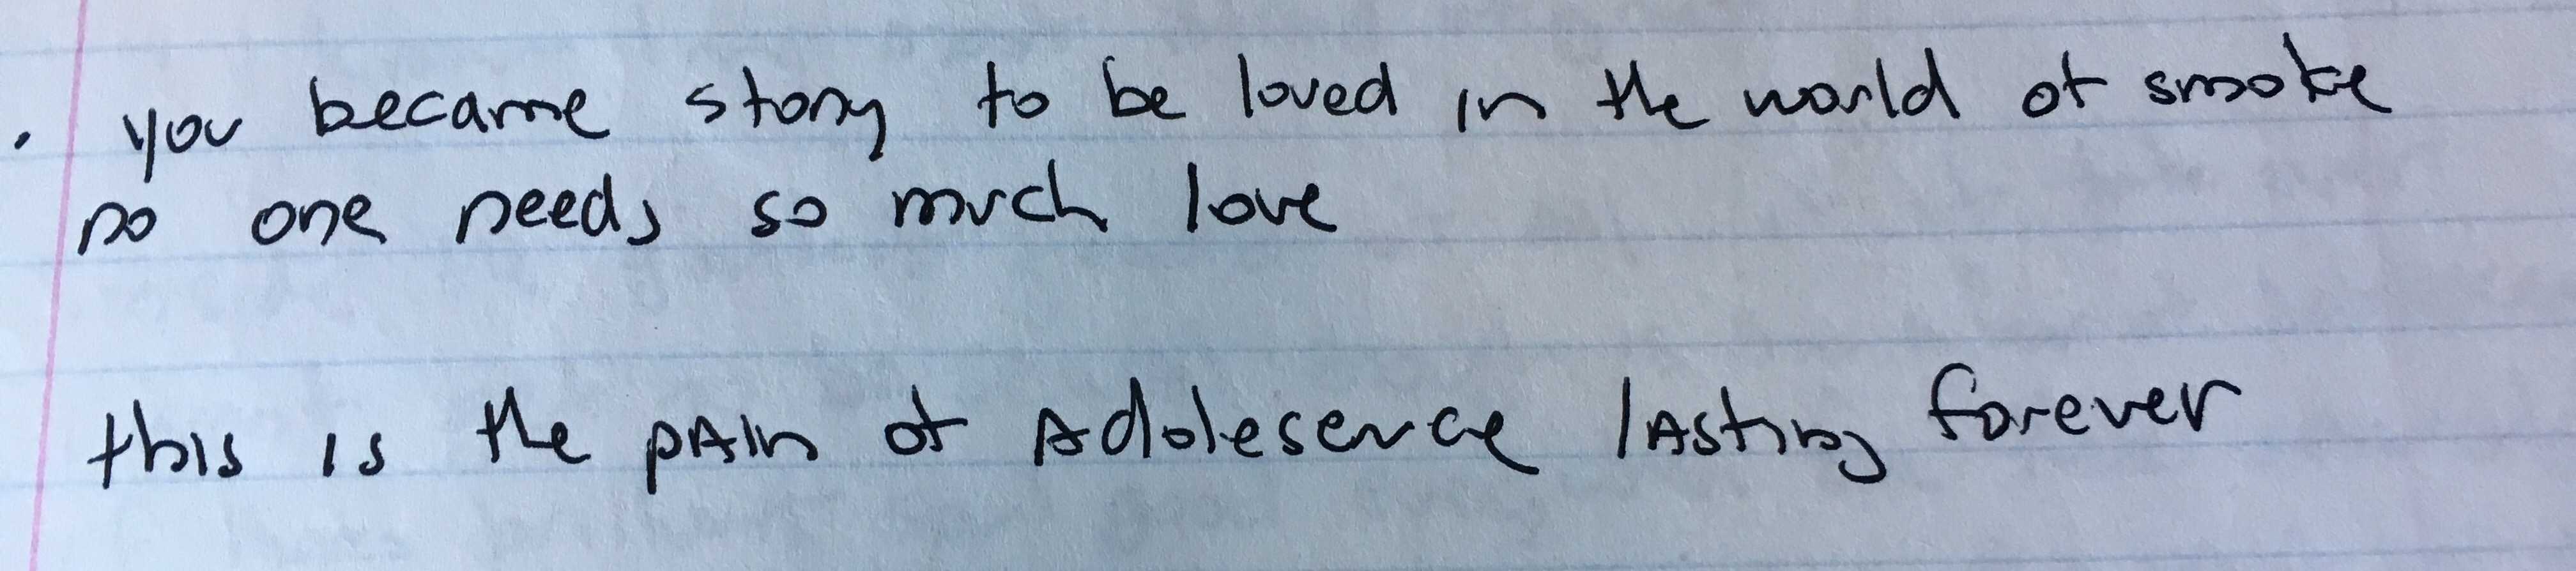 . you became story to be loved in the world of smoke
no one needs so much love
this is the pain of Adolesence lasting forever